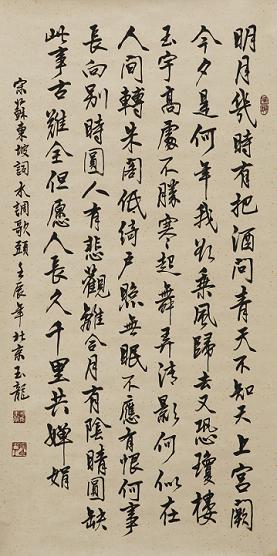 明月幾時有把酒問青天不知天上宮闕
今夕是何年我欲乘風歸去又恐瓊樓
玉宇高處不勝寒起舞弄清影何似在
人间轉朱閣低綺户照無眠不應有恨何事
長向别時圓人有悲歡離合月有陰晴圓缺
此事古難全但愿人長久千里共嬋娟
宋蘇東坡詞水調歌頭壬辰年北京玉龍